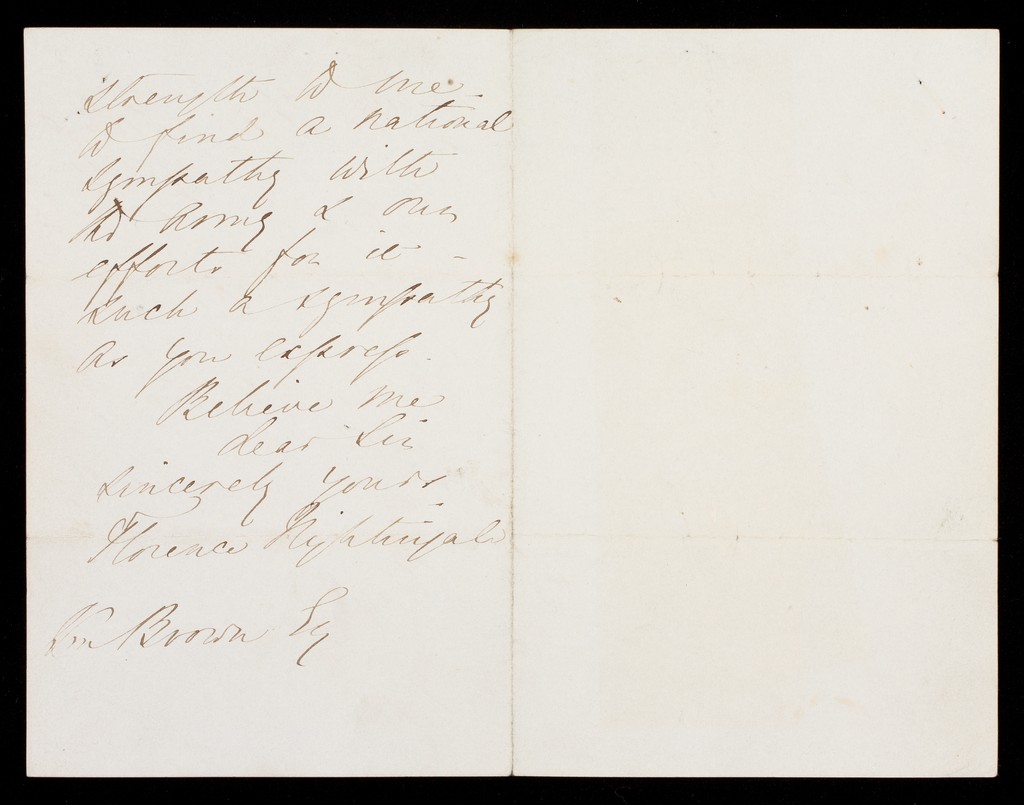 strength to me
to find a national
sympathy with
the Army & our
efforts for it -
such a sympathy
as you express.
Believe me
dear Sir
sincerely yours
Florence Nightingale
Wm Brown Esq